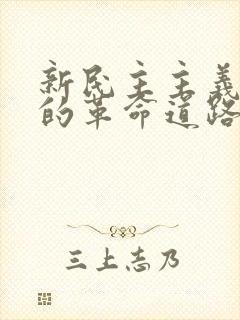 新民主主义
的革命道路
三上志乃